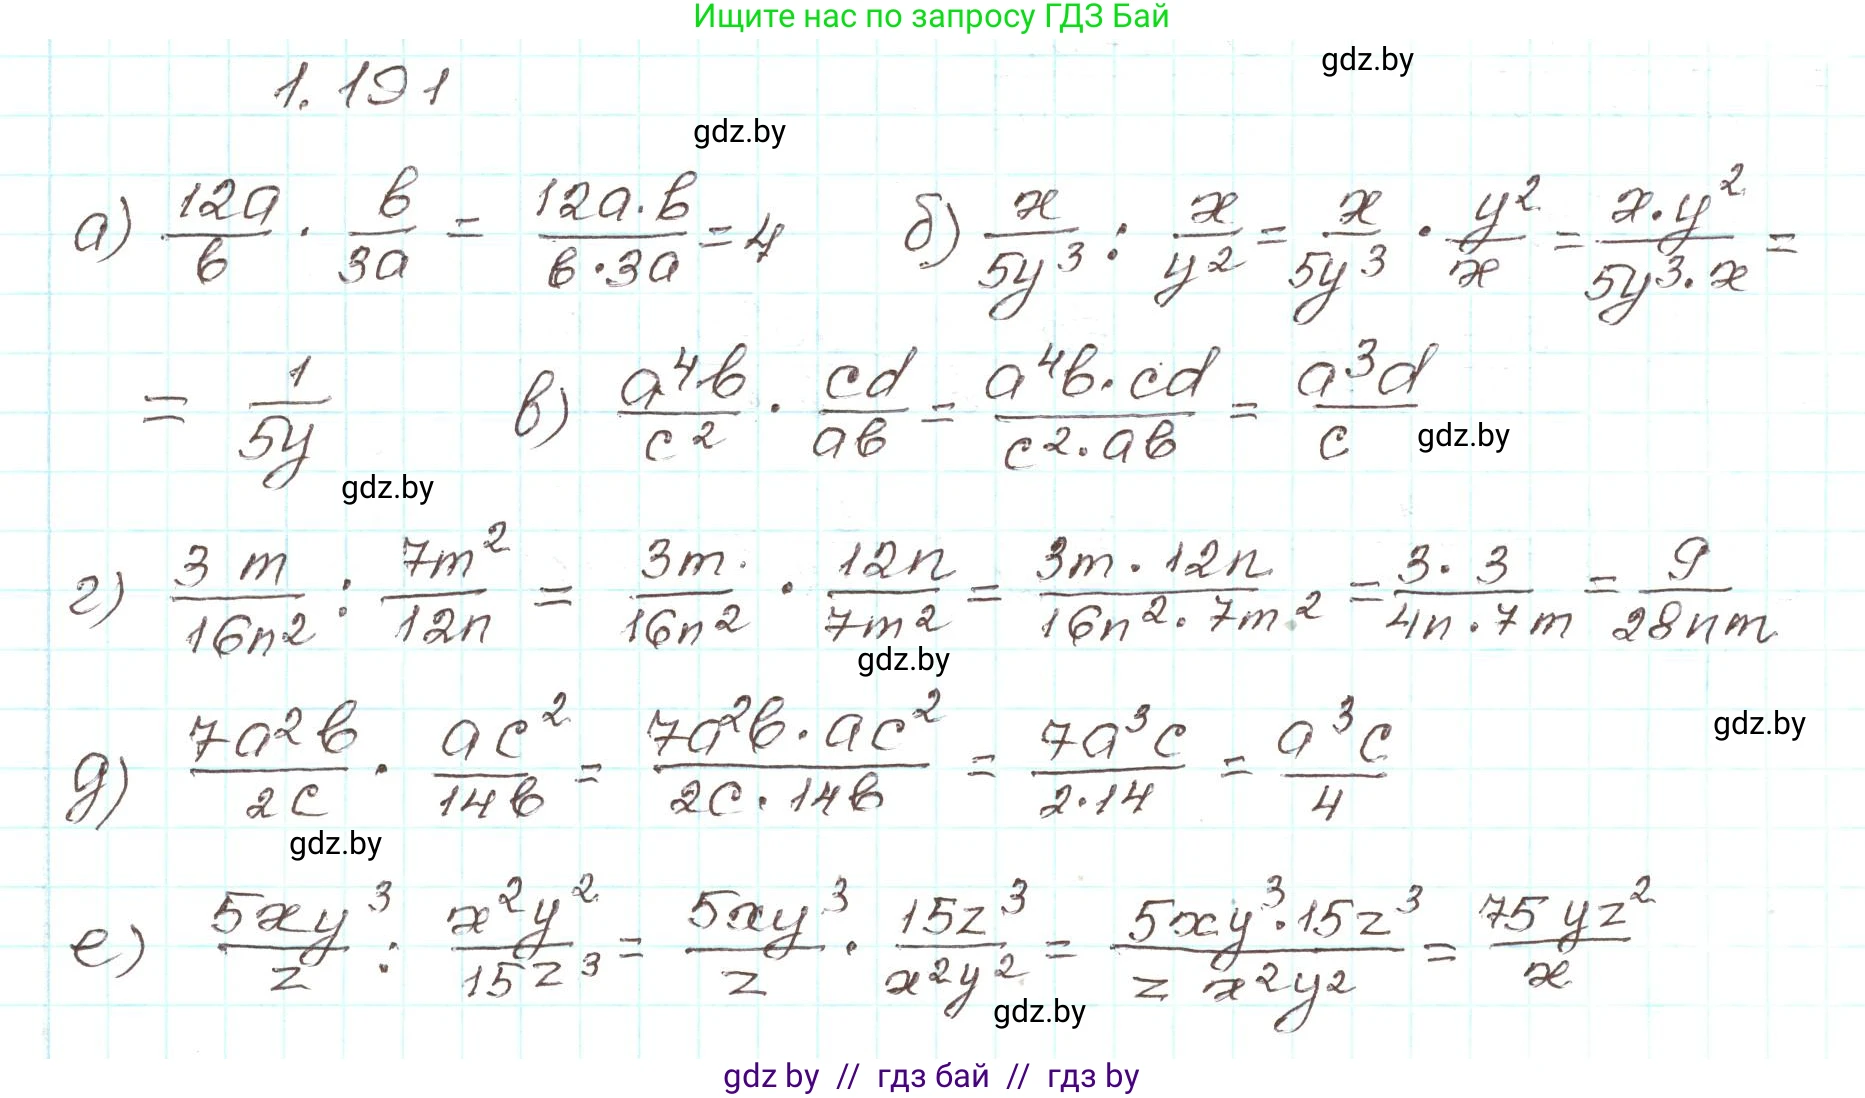 Ищите нас по запросу ГДЗ Бай
gdz.by
1.191
gdz.by
а) 12a/b · b/3a = 12a·b/b·3a = 4   б) x/5y³ : x/y² = x/5y³ · y²/x = x·y²/5y³·x =
= 1/5y   в) a⁴b/c² · cd/ab = a⁴b·cd/c²·ab = a³d/c
gdz.by
gdz.by
г) 3m/16n² : 7m²/12n = 3m/16n² · 12n/7m² = 3m·12n/16n²·7m² = 3·3/4n·7m = 9/28nm
gdz.by
gdz.by
д) 7a²b/2c · ac²/14b = 7a²b·ac²/2c·14b = 7a³c/2·14 = a³c/4
gdz.by
е) 5xy³/z : x²y²/15z³ = 5xy³/z · 15z³/x²y² = 5xy³·15z³/z x²y² = 75yz²/x
gdz.by
gdz by // гдз бай // гдз by